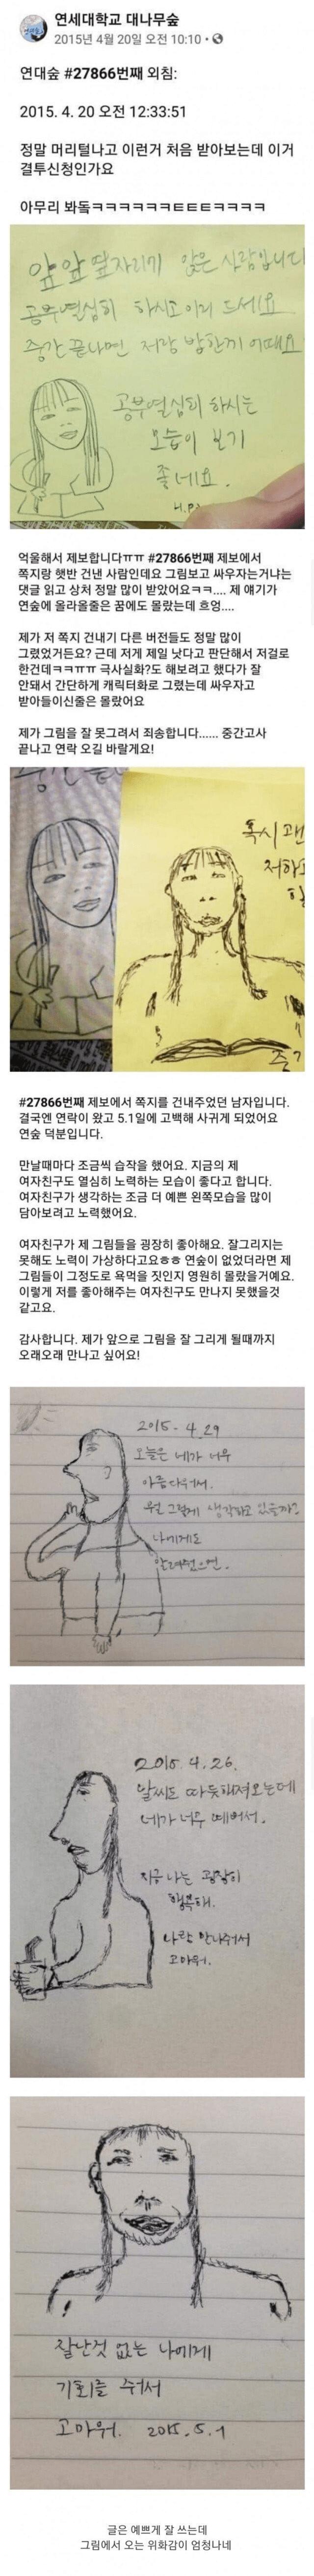 연세대학교 대나무숲
2015년 4월 20일 오전 10:10 ·
연대숲 #27866번째 외침:
2015. 4. 20 오전 12:33:51
정말 머리털나고 이런거 처음 받아보는데 이거
결투신청인가요
아무리 봐돜ㅋㅋㅋㅋㅋㅋㅌㅌㅌㅋㅋㅋㅋ
앞앞 옆자리에 앉은 사람입니다
공부열심히 하시고 이거 드세요
중간 끝나면 저랑 밥한끼 어때요
공부열심히 하시는
모습이 보기
좋네요.
억울해서 제보합니다ㅠㅠ #27866번째 제보에서
쪽지랑 햇반 건낸 사람인데요 그림보고 싸우자는거냐는
댓글 읽고 상처 정말 많이 받았어요ㅋㅋ.... 제 얘기가
연숲에 올라올줄은 꿈에도 몰랐는데 흐엉....
제가 저 쪽지 건내기 다른 버전들도 정말 많이
그렸었거든요? 근데 저게 제일 낫다고 판단해서 저걸로
한건데ㅋㅋㅠㅠ 극사실화?도 해보려고 했다가 잘
안돼서 간단하게 캐릭터화로 그렸는데 싸우자고
받아들이신줄은 몰랐어요
제가 그림을 잘 못그려서 죄송합니다...... 중간고사
끝나고 연락 오길 바랄게요!
혹시 괜
저하고
#27866번째 제보에서 쪽지를 건내주었던 남자입니다.
결국엔 연락이 왔고 5.1일에 고백해 사귀게 되었어요
연숲 덕분입니다.
만날때마다 조금씩 습작을 했어요. 지금의 제
여자친구도 열심히 노력하는 모습이 좋다고 합니다.
여자친구가 생각하는 조금 더 예쁜 왼쪽모습을 많이
담아보려고 노력했어요.
여자친구가 제 그림들을 굉장히 좋아해요. 잘그리지는
못해도 노력이 가상하다고요ㅎㅎ 연숲이 없었더라면 제
그림들이 그정도로 욕먹을 짓인지 영원히 몰랐을거예요.
이렇게 저를 좋아해주는 여자친구도 만나지 못했을것
같고요.
감사합니다. 제가 앞으로 그림을 잘 그리게 될때까지
오래오래 만나고 싶어요!
2015. 4. 29
오늘은 네가 너무
아름다워서.
뭘 그렇게 생각하고 있을까?
나에게도
알려줬으면.
2015. 4. 26.
날씨도 따듯해져오는데
네가 너무 예뻐서.
지금 나는 굉장히
행복해.
나랑 만나줘서
고마워.
잘난것 없는 나에게
기회를 줘서
고마워. 2015. 5. 1
글은 예쁘게 잘 쓰는데
그림에서 오는 위화감이 엄청나네